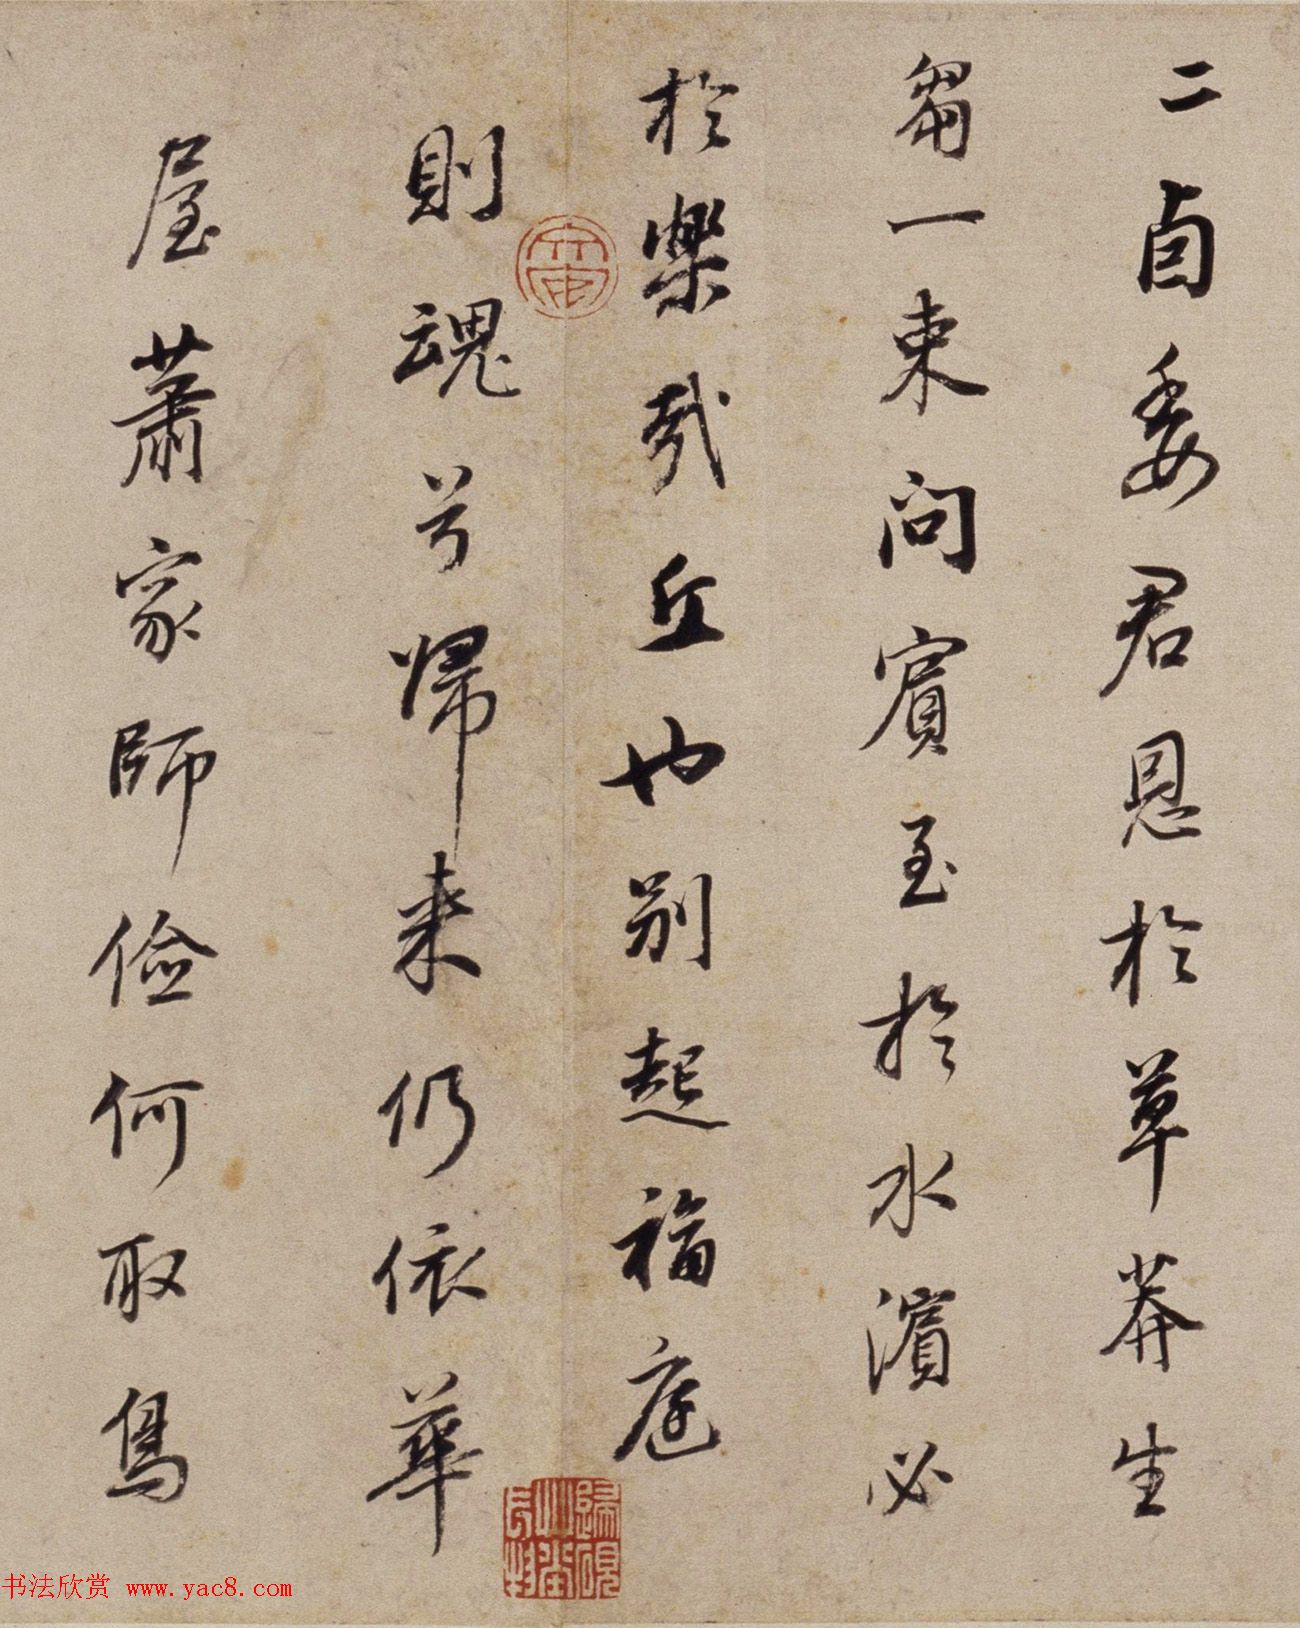 二卣委君恩於草莽生
芻一束問賓至於水濱必
於樂哉丘也別起福庭
則魂兮歸来仍依華
屋蕭家師儉何取鳥
书法欣赏 www.yac8.com